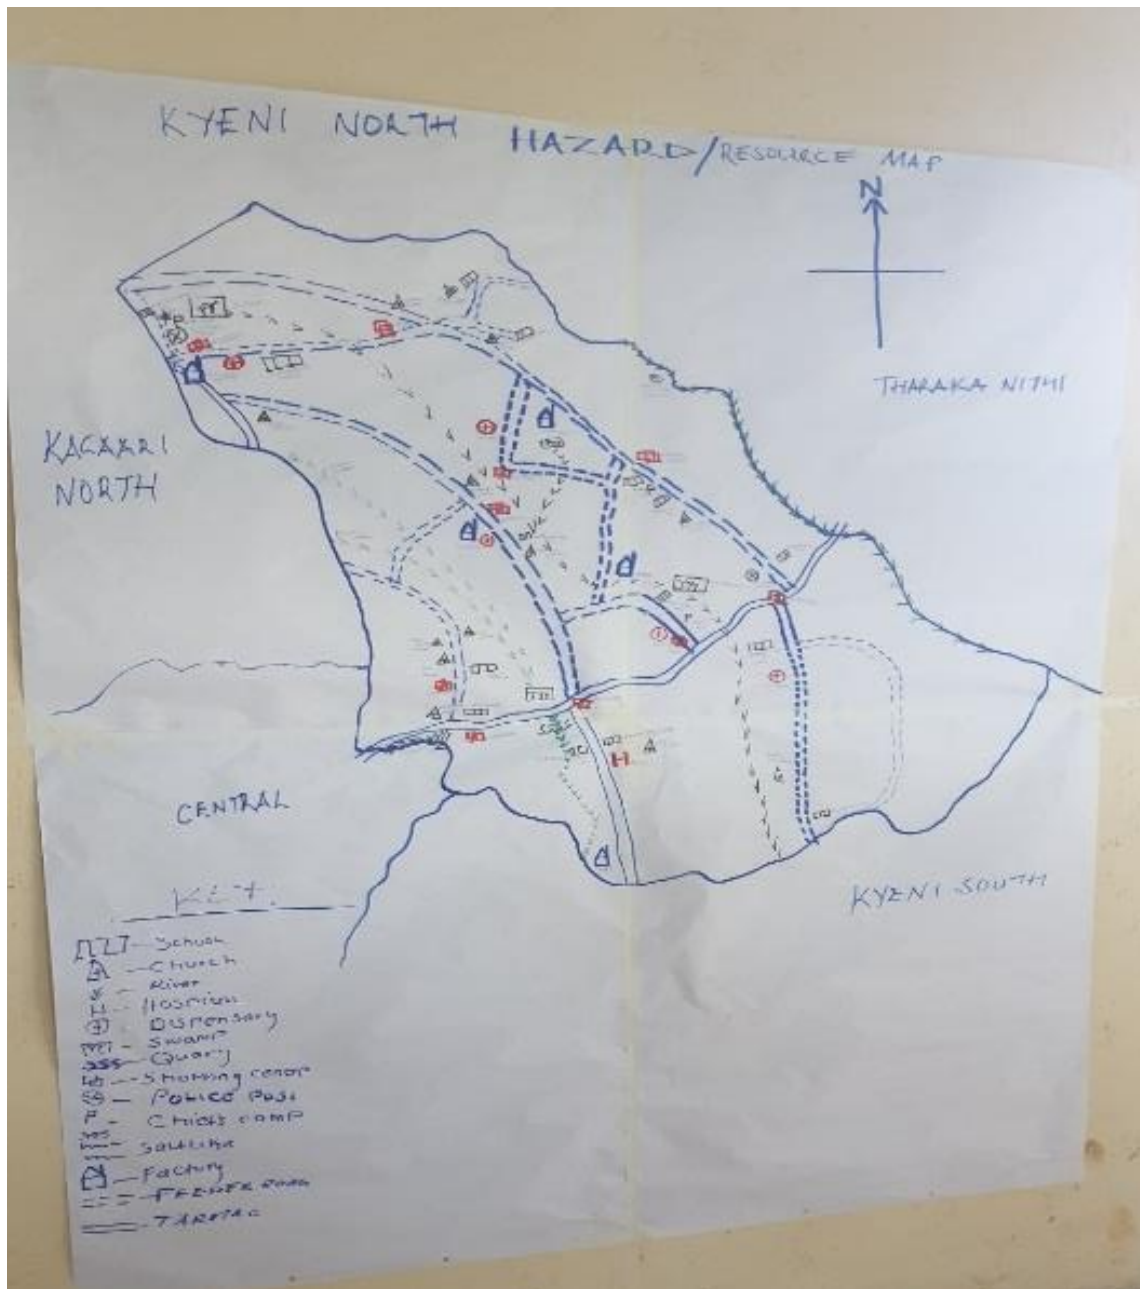 KYENI NORTH HAZARD/RESOURCE MAP
N
THARAKA NITHI
KAGAARI
NORTH
CENTRAL
KYENI SOUTH
KEY
School
Church
River
Dispensary
Swamp
Quary
Police Post
Chiefs camp
Factory
FEEDER ROAD
TARMAC
H